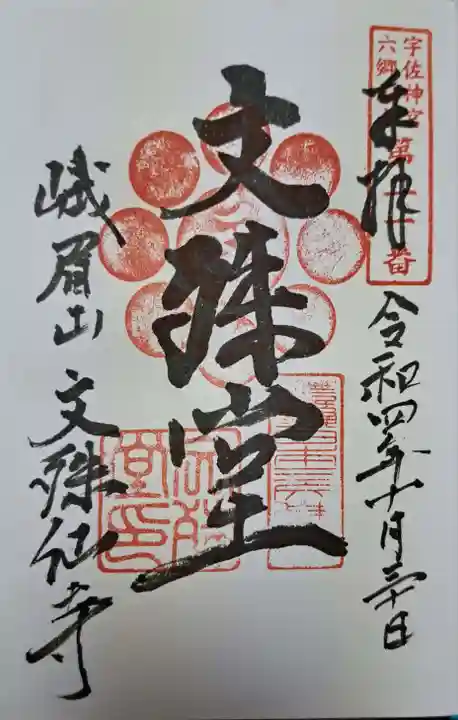 宇佐神宮
六郷
第
番
奉拝
令和四年十月三十日
文殊堂
峨眉山 文殊仙寺